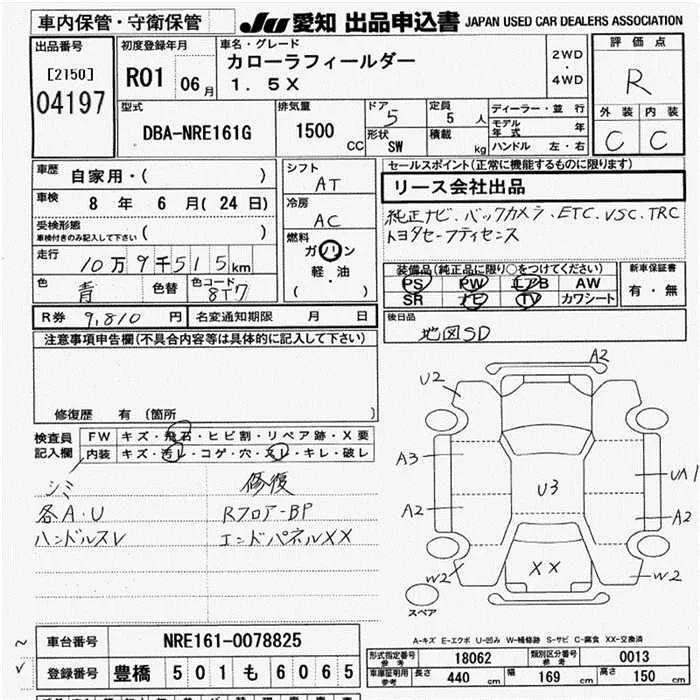 車内保管・守衛保管 JU 愛知 出品申込書 JAPAN USED CAR DEALERS ASSOCIATION
出品番号 [2150] 04197
初度登録年月 R01 06月
車名・グレード カローラフィールダー 1.5X
2WD・4WD
評価点 R
外装 内装
C C
型式 DBA-NRE161G
排気量 1500 CC
ドア 5
定員 5 人
形状 SW
積載 kg
ディーラー・並行
モデル年式 年
ハンドル 左・右
車歴 自家用・( )
車検 8 年 6 月(24日)
受検形態 車検付きのみ記入して下さい ( )
走行 10万9千515km
色 青 色替 色コード 8T7
シフト AT
冷房 AC
燃料 ガソリン 軽・油 ( )
セールスポイント(正常に機能するものに限ります)
リース会社出品
純正ナビ、バックカメラ、ETC、VSC、TRC
トヨタセーフティセンス
装備品(純正品に限り○をつけてください)
PS PW エアB AW
SR ナビ TV カワシート
新車保証書 有・無
R券 9,810 円 名変通知期限 月 日
後日品 地図SD
注意事項申告欄(不具合内容等は具体的に記入して下さい)
修復歴 有(箇所 )
検査員記入欄
FW キズ・飛石・ヒビ割・リペア跡・X要
内装 キズ・汚レ・コゲ・穴・スレ・キレ・破レ
シミ 修復
各A・U Rフロアー-BP
ハンドルスレ エンドパネルXX
A2
U2
A3
UA1
A2
U3
A2
XX
W2
W2
スペア
A-キズ E-エクボ U-凹み W-補修跡 S-サビ C-腐食 XX-交換済
車台番号 NRE161-0078825
登録番号 豊橋 501 も 6065
形式指定番号 参考 18062 類別区分番号 参考 0013
車庫証明用 参考 長さ 440 cm 幅 169 cm 高さ 150 cm